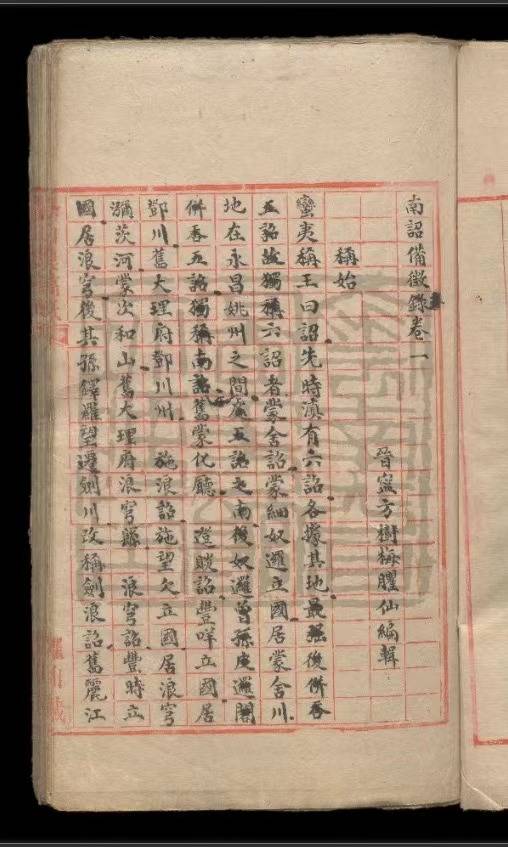 南詔備徵錄卷一
晉寧方樹梅臞仙編輯
稱始
蠻夷稱王曰詔先時滇有六詔各據其地後併吞
五詔故獨稱六詔者蒙舍詔蒙細奴邏立國居蒙舍川
地在永昌姚州之間居五詔之南後奴邏曾孫皮邏閣
併吞五詔獨稱南詔舊蒙化廳 邆賧詔豐咩立國居
鄧川舊大理府鄧川州 施浪詔施望欠立國居浪穹
瀰茨河蒙次和山舊大理府浪穹縣 浪穹詔豐時立
國居浪穹後其孫鐸羅望遷劍川改稱劍浪詔舊麗江